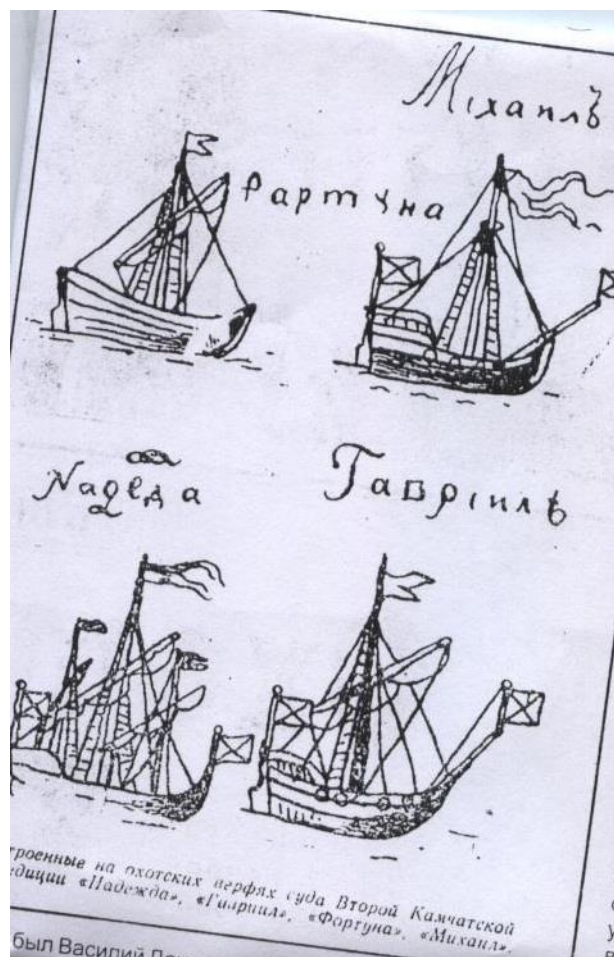 Міхаилъ
Фартуна
Надежда
Гавріилъ
троенные на охотских верфях суда Второй Камчатской
едиции «Надежда», «Гавриил», «Фортуна», «Михаил».
был Василий